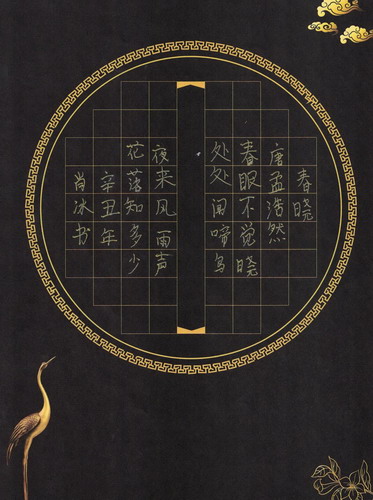 春晓
唐孟浩然
春眼不觉晓
处处闻啼鸟
夜来风雨声
花落知多少
辛丑年
肖冰书